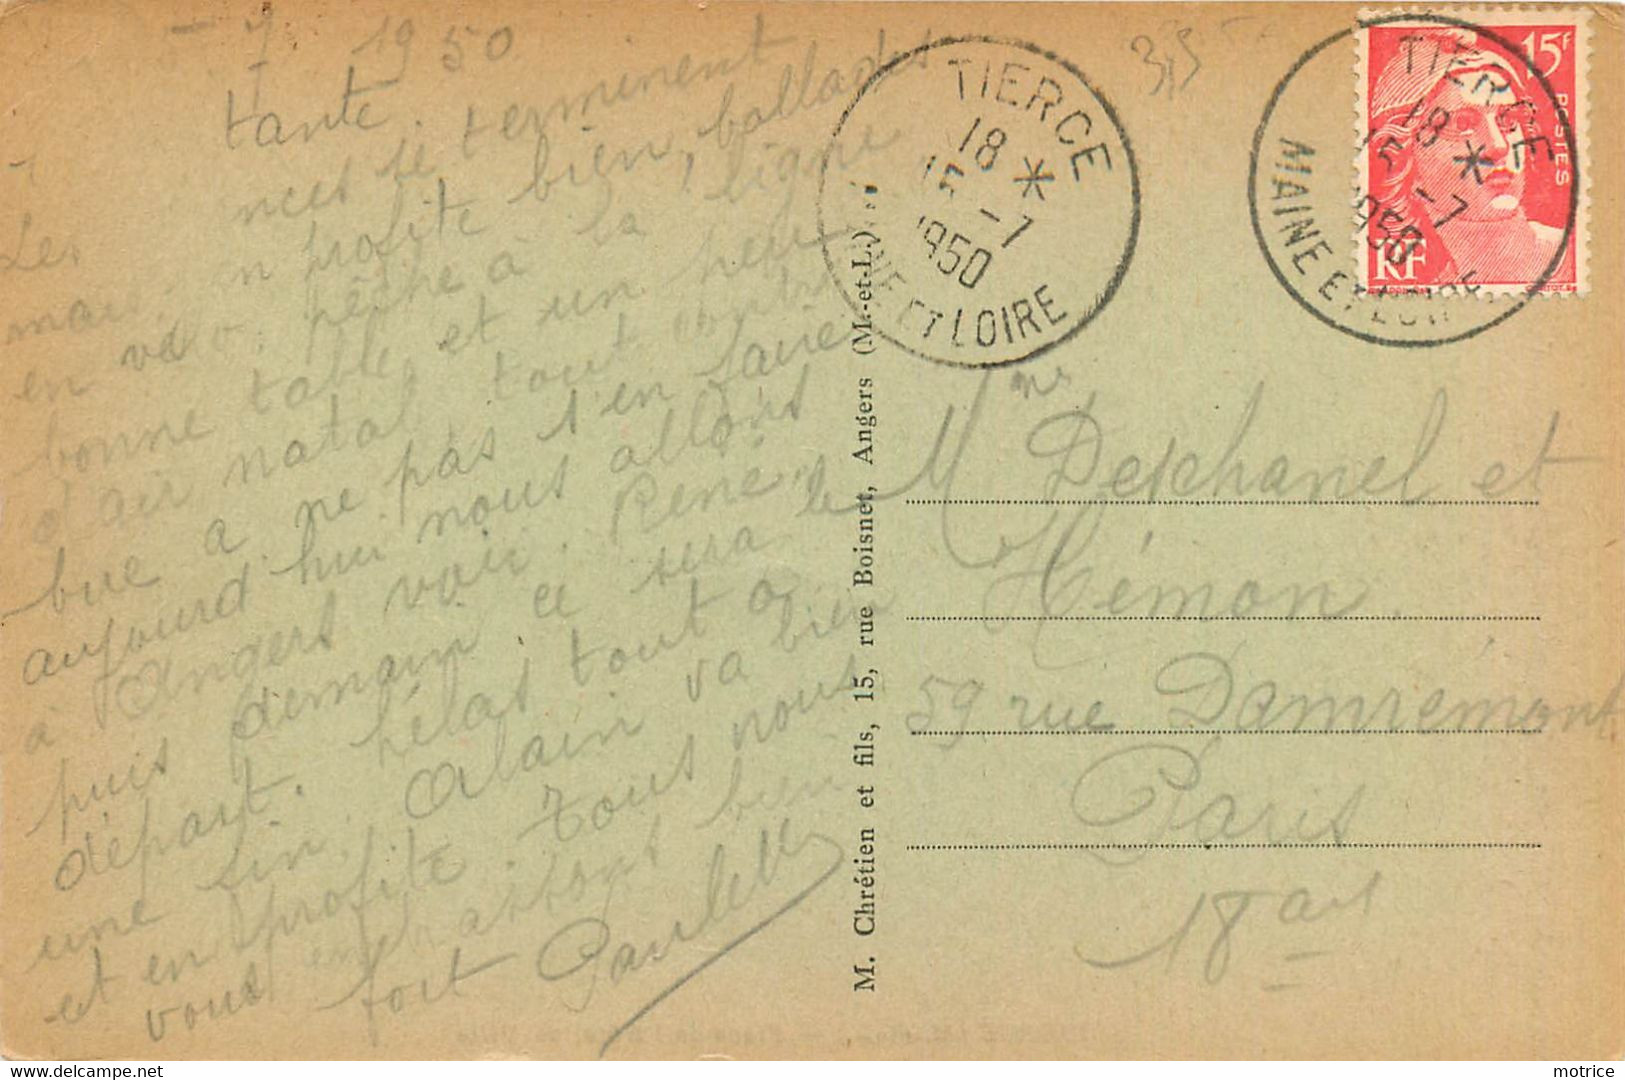 - 7 1950
tante.
Les nces se terminent
mai n profite bien, ballades
en vélo, pêche à la ligne
bonne table et un peu
d'air natal tout
bue a ne pas s'en faire
aujourd hui nous allons
à Angers voir René,
puis demain ce sera le
départ. hélas tout a
une fin. Alain va bien
et en profite. Tous nous
vous embrassons bien
fort Paulette
M. Chrétien et fils, 15, rue Boisnet, Angers (M.-et-L.)
TIERCE
18 *
15 -7
1950
MAINE ET LOIRE
3,5
TIERCE
18 *
15 -7
1950
MAINE ET LOIRE
15F
POSTES
RF
Mmes
M Deschanel et
Hémon.
59 rue Damrémont
Paris
18 art
motrice